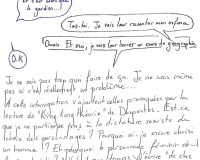 la gardien....
Tais-toi. Je vais leur raconter mon enfance
Ouais. Et moi, je vais leur donner un cours de géographie
O.K
Je ne sais pas trop quoi faire de ça. Je ne sais même
pas si c'est réellement un problème...
A cette interrogation s'ajoutent celles provoquées par la
lecture de "King Kong théorie" de Despentes. Est-ce
que je ne participe plus à la dictature sexiste du
choix des personnages ? Pourquoi ai-je encore choisi
un homme ? Et pourquoi le personnage féminin est-il
de chez